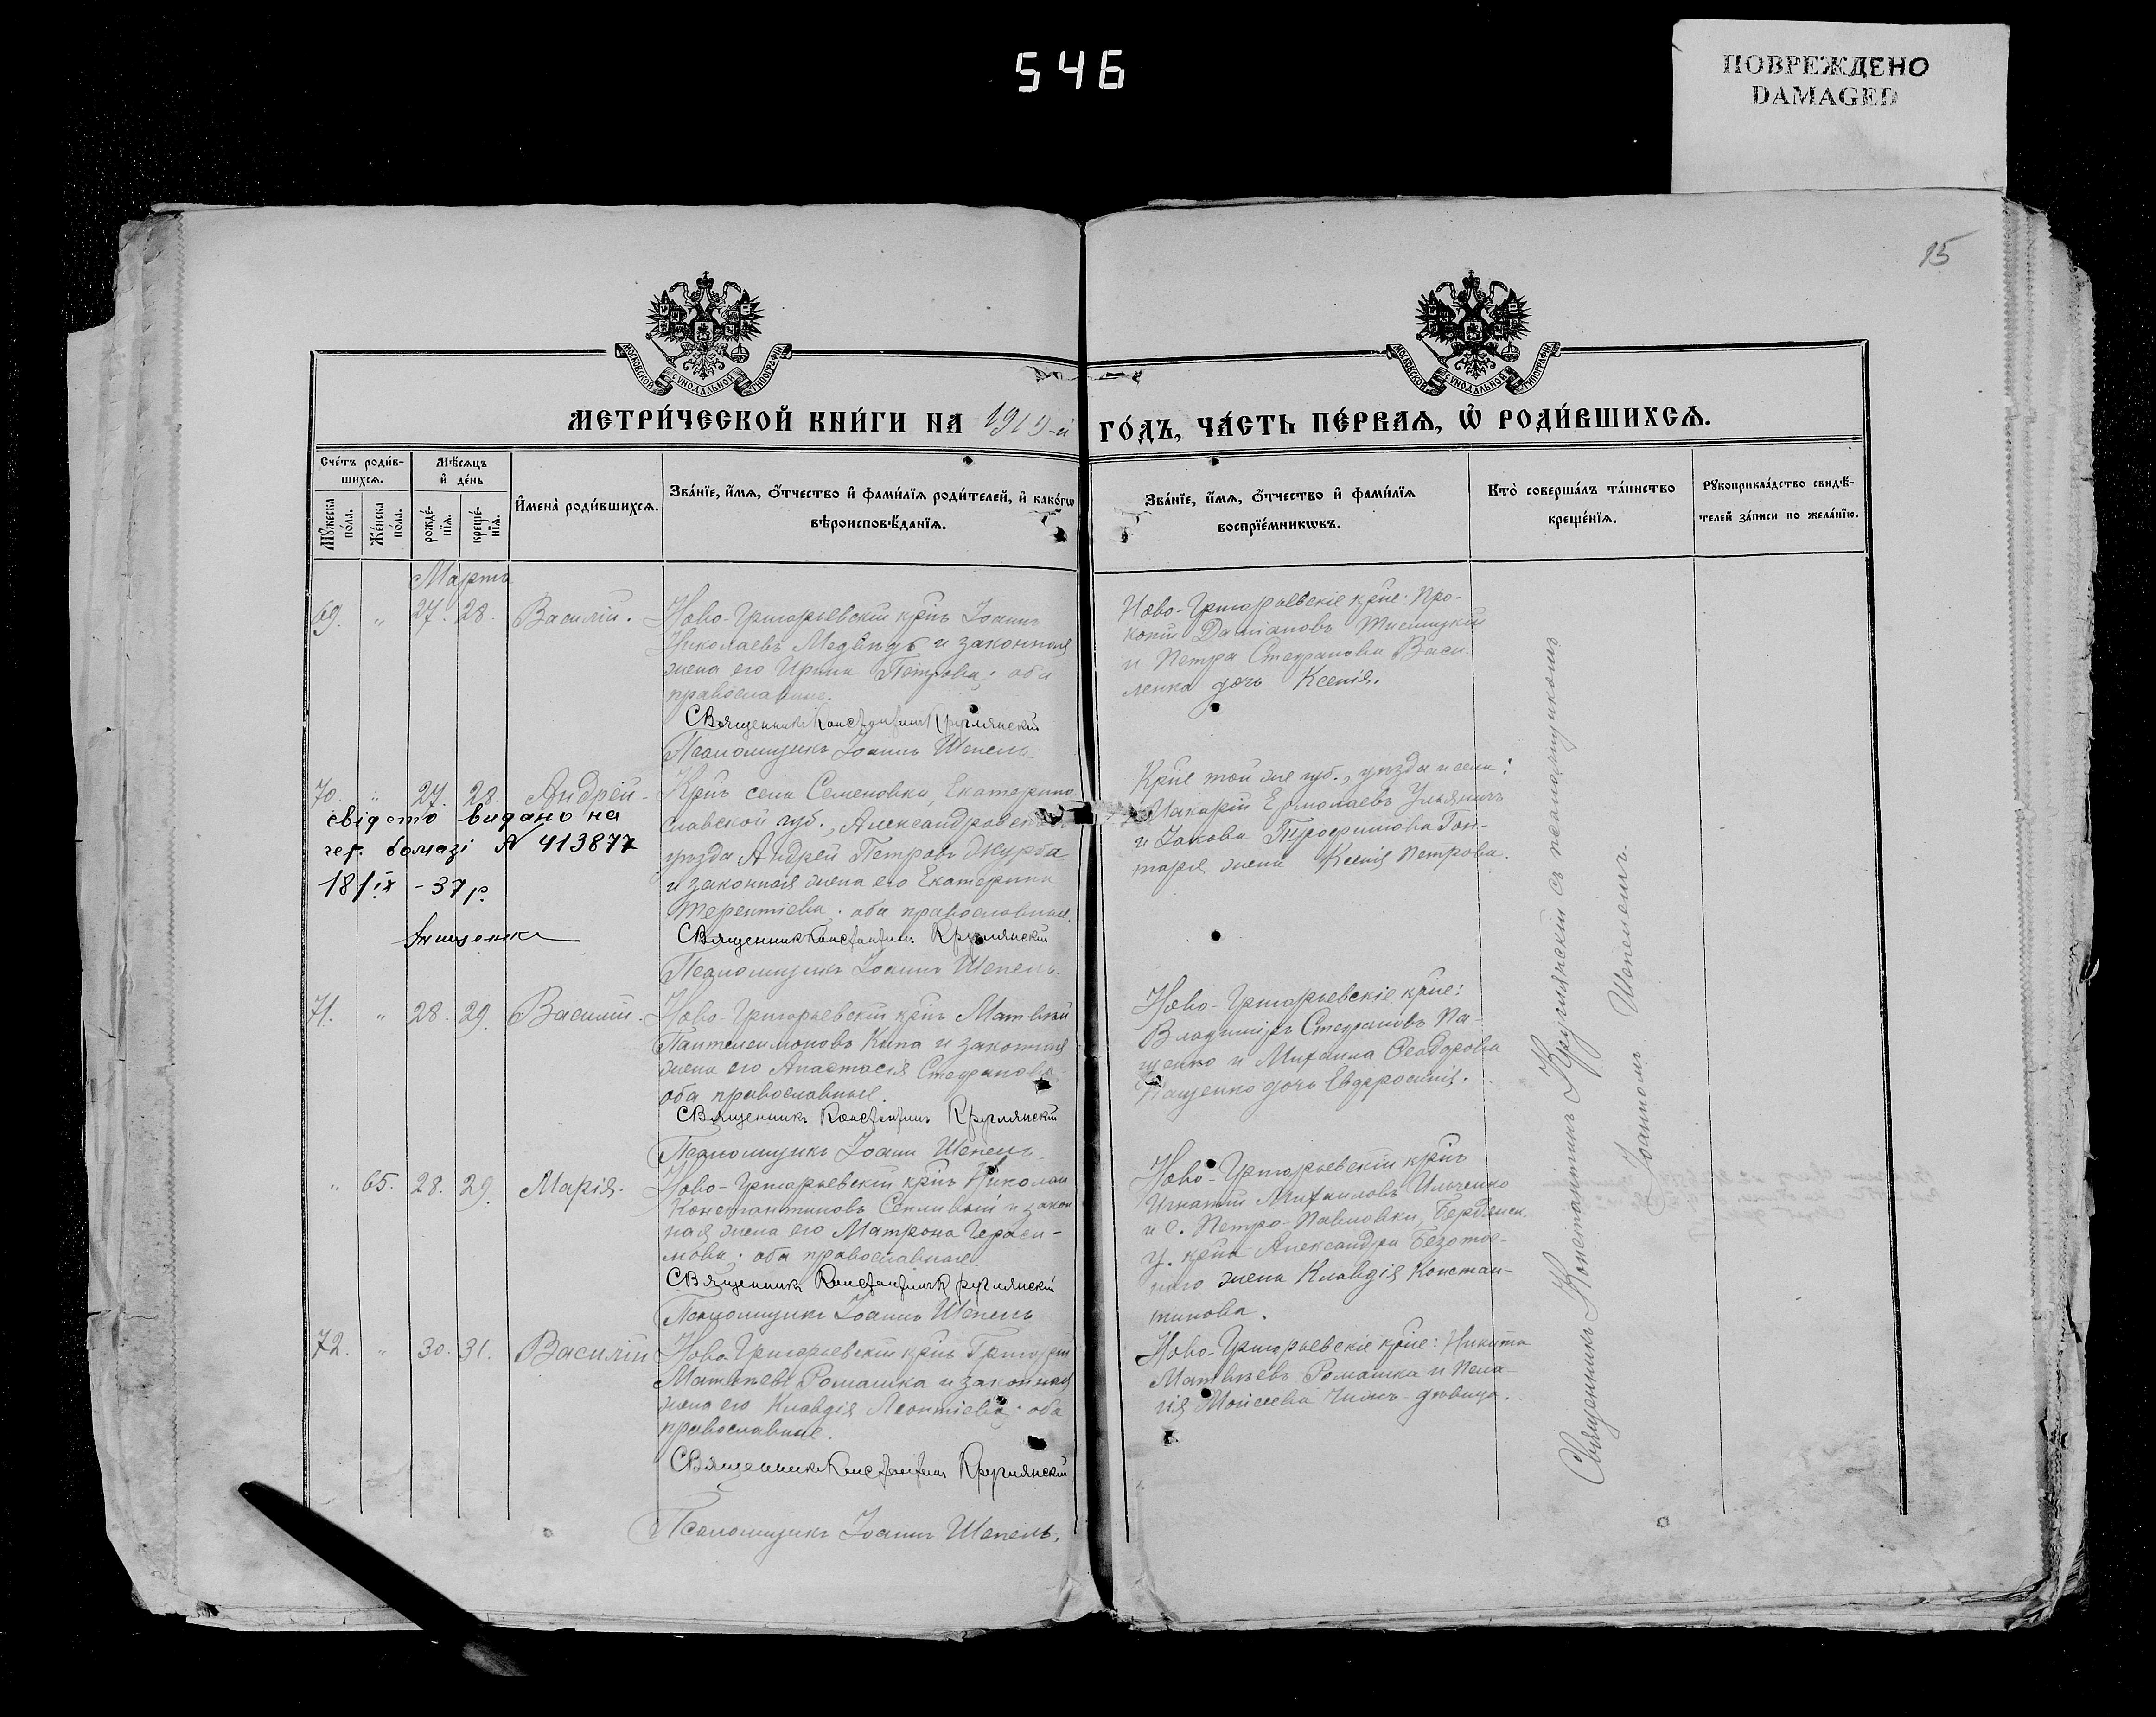 546
ПОВРЕЖДЕНО
DAMAGED
15
МОСКОВСКОЙ СѴНОДАЛЬНОЙ ТИПОГРАФІИ
МОСКОВСКОЙ СѴНОДАЛЬНОЙ ТИПОГРАФІИ
МЕТРИ́ЧЕСКОЙ КНИ́ГИ НА 1910-й ГО́ДЪ, ЧА́СТЬ ПЕ́РВАѦ, Ѡ҆ РОДИ́ВШИХСѦ.
Сче́тъ роди́в-
шихсѧ.
Мꙋ́жеска по́ла.
Же́нска по́ла.
Мѣ́сѧцъ и҆ де́нь
рожде́-нїѧ.
креще́-нїѧ.
И҆мена̀ роди́вшихсѧ.
Зва́нїе, и҆́мѧ, ѻ҆́тчество и҆ фами́лїѧ роди́телей, и҆ како́гѡ
вѣроисповѣ́данїѧ.
Зва́нїе, и҆́мѧ, ѻ҆́тчество и҆ фами́лїѧ
воспрїе́мникѡвъ.
Кто̀ соверша́лъ та́инство
креще́нїѧ.
Рꙋкоприкла́дство свидѣ́-
телей за́писи по жела́нїю.
Мартъ
69. " 27. 28. Василій.
Ново-Григорьевскій крнъ Іоаннъ
Николаевъ Медвѣдь и законная
жена его Ирина Петрова; оба
православные.
Священникъ Константинъ Круглянскій
Псаломщикъ Іоаннъ Шепель.
Ново-Григорьевскіе крне: Про-
копій Даміановъ
и Петра Стефанова Васи-
ленка дочь Ксенія.
70. " 27. 28. Андрей.
свідотс видано на
гер. бомазі № 413877
18/ІХ - 37 р.
Крнъ села Семеновки, Екатерино
славской губ., Александровск.
уѣзда Андрей Петровъ Журба
и законная жена его Екатерина
Терентіева; оба православные.
Священникъ Константинъ Круглянскій
Псаломщикъ Іоаннъ Шепель.
Крне той же губ., уѣзда и села:
Макарій Ермолаевъ Ульяничъ
и Іакова Трофимова Гон-
таря жена Ксенія Петрова.
71. " 28. 29. Василій.
Ново-Григорьевскій крнъ Матвѣй
Пантелеимоновъ Кипа и законная
жена его Анастасія Стефанова
оба православные.
Священникъ Константинъ Круглянскій
Псаломщикъ Іоаннъ Шепель.
Ново-Григорьевскіе крне:
Владиміръ Стефановъ Па-
щенко и Михаила Ѳеодорова
Пащенко дочь Евфросинія.
" 65. 28. 29. Марія.
Ново-Григорьевскій крнъ Николай
Константиновъ Сепливый и закон
ная жена его Матрона Гераси-
мова; оба православные.
Священникъ Константинъ Круглянскій
Псаломщикъ Іоаннъ Шепель
Ново-Григорьевскій крнъ
Игнатій Михаиловъ Ильченко
и с. Петро-Павловки, Бердянск.
у. крна Александра Безотос-
наго жена Клавдія Констан-
тинова.
72. " 30. 31. Василій
Ново-Григорьевскій крнъ Григорій
Матвѣевъ Ромашка и законная
жена его Клавдія Леонтіева; оба
православные.
Священникъ Константинъ Круглянскій
Псаломщикъ Іоаннъ Шепель.
Ново-Григорьевскіе крне: Никита
Матвѣевъ Ромашка и Пела-
гія Моисеева Чижъ-дѣвица.
Священникъ Константинъ Круглянскій съ псаломщикомъ
Іоанномъ Шепелемъ.